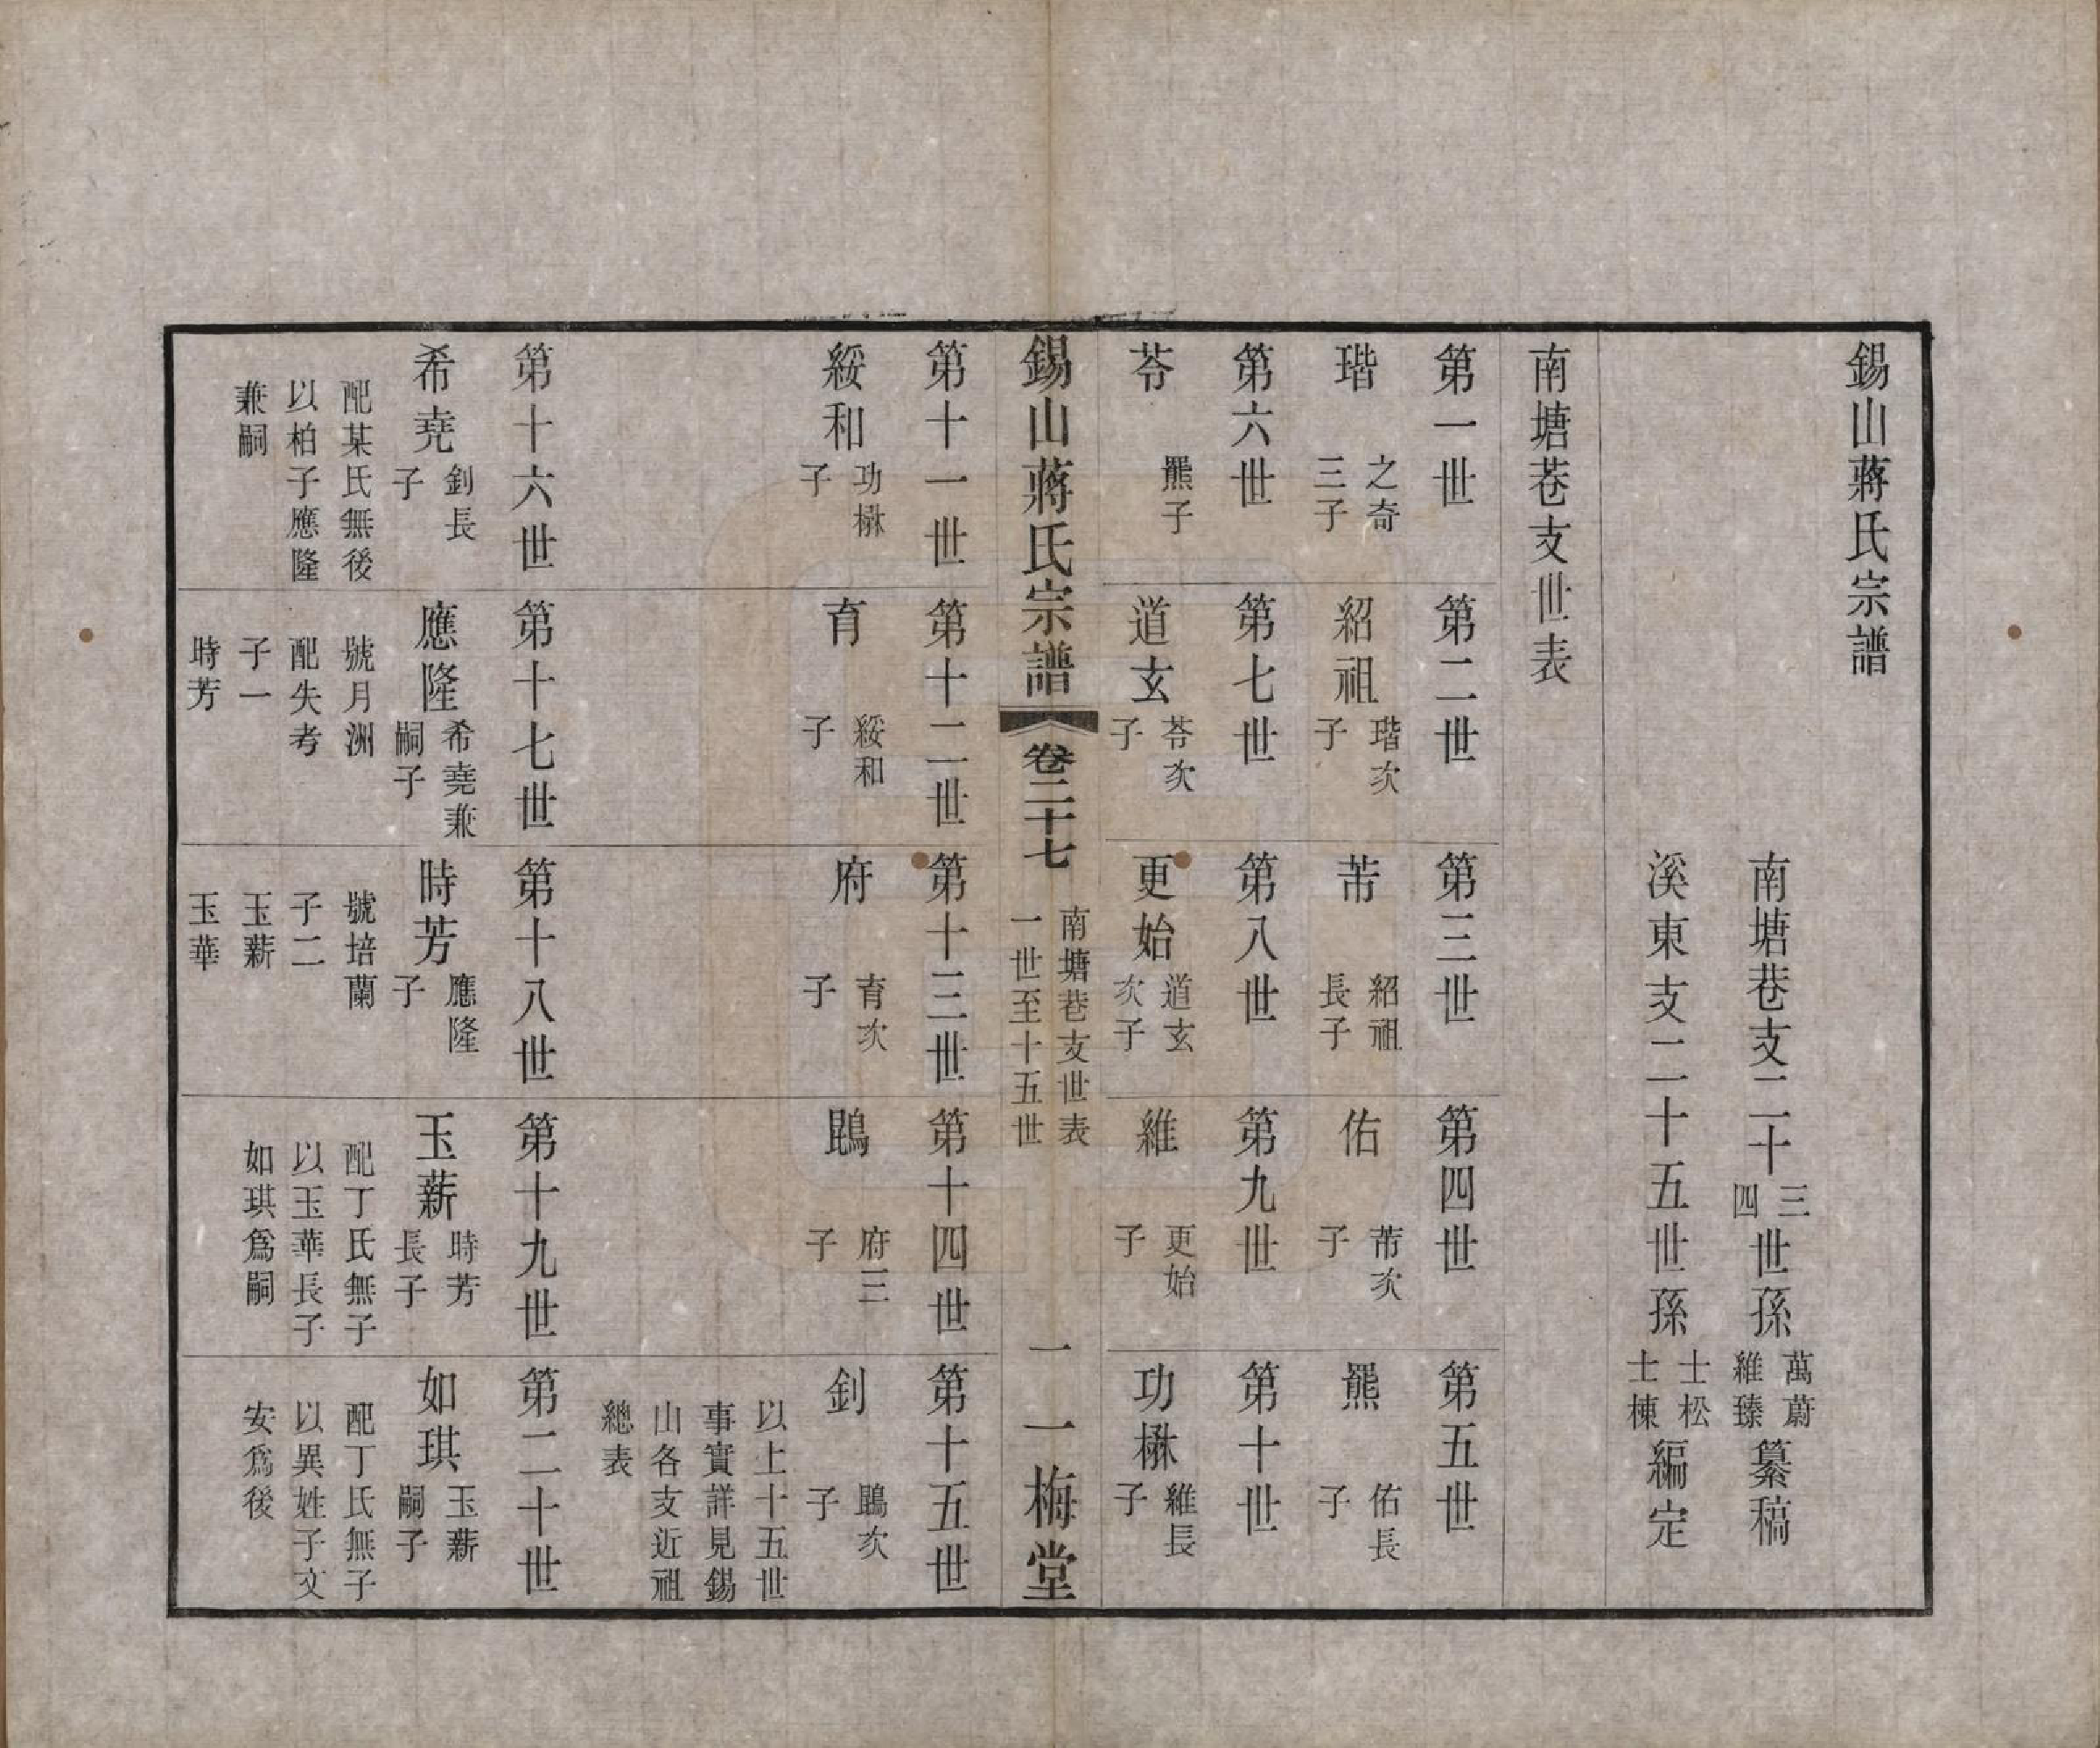 錫山蔣氏宗譜
南塘巷支二十三四世孫萬蔚維臻纂稿
溪東支二十五世孫士松士棟編定
南塘巷支世表
第一世
瑎 之奇三子
第二世
紹祖 瑎次子
第三世
芾 紹祖長子
第四世
佑 芾次子
第五世
羆 佑長子
第六世
苓 羆子
第七世
道玄 苓次子
第八世
更始 道玄次子
第九世
維 更始子
第十世
功楙 維長子
錫山蔣氏宗譜 卷二十七 南塘巷支世表一世至十五世 一 一梅堂
第十一世
綏和 功楙子
第十二世
育 綏和子
第十三世
府 育次子
第十四世
鶤 府三子
第十五世
釗 鶤次子
以上十五世
事實詳見錫
山各支近祖
總表
第十六世
希堯 釗長子
配某氏無後
以柏子應隆
兼嗣
第十七世
應隆 希堯兼嗣子
號月洲
配失考
子一
時芳
第十八世
時芳 應隆子
號培蘭
子二
玉薪
玉華
第十九世
玉薪 時芳長子
配丁氏無子
以玉華長子
如琪為嗣
第二十世
如琪 玉薪嗣子
配丁氏無子
以異姓子文
安為後